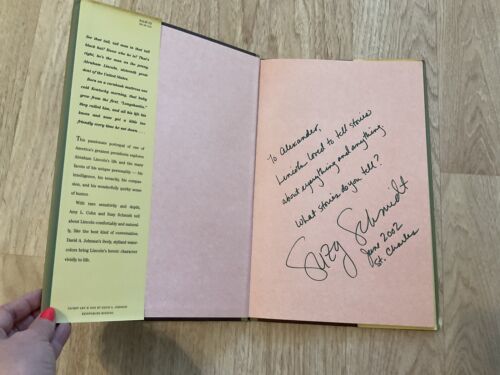 See that tall, tall man in that tall
black hat? Know who he is? That's
right, he's the man on the penny.
Abraham Lincoln, sixteenth presi-
dent of the United States.
Born on a cornhusk mattress one
cold Kentucky morning, that baby
grew from the first. "Longshanks,"
they called him, and all his life his
knees and nose got a little too
friendly every time he sat down . . .
This passionate portrayal of one of
America's greatest presidents explores
Abraham Lincoln's life and the many
facets of his unique personality — his
intelligence, his tenacity, his compas-
sion, and his wonderfully quirky sense
of humor.
With rare sensitivity and depth,
Amy L. Cohn and Suzy Schmidt tell
about Lincoln comfortably and natural-
ly, like the best kind of conversation.
David A. Johnson's lively, stylized water-
colors bring Lincoln's heroic character
vividly to life.
JACKET ART © 2002 BY DAVID A. JOHNSON
To Alexander,
Lincoln loved to tell stories
about everything and anything
What stories do you tell?
Suzy Schmidt
June 2002
St. Charles